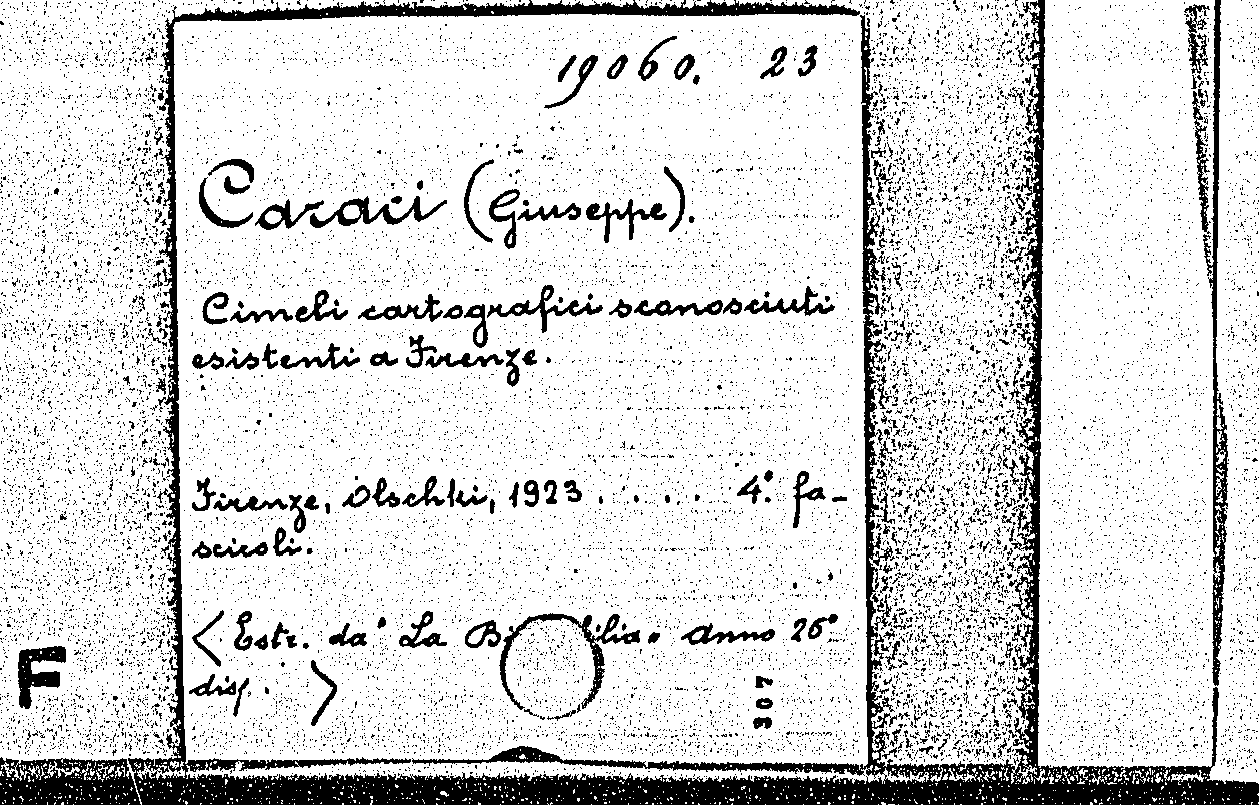 19060. 23
Caraci (Giuseppe).
Cimeli cartografici sconosciuti
esistenti a Firenze.
Firenze, Olschki, 1923 . . . . 4.° fa-
scicoli.
<Estr. da "La Bi ilia" Anno 26°
disp. . >
307
F